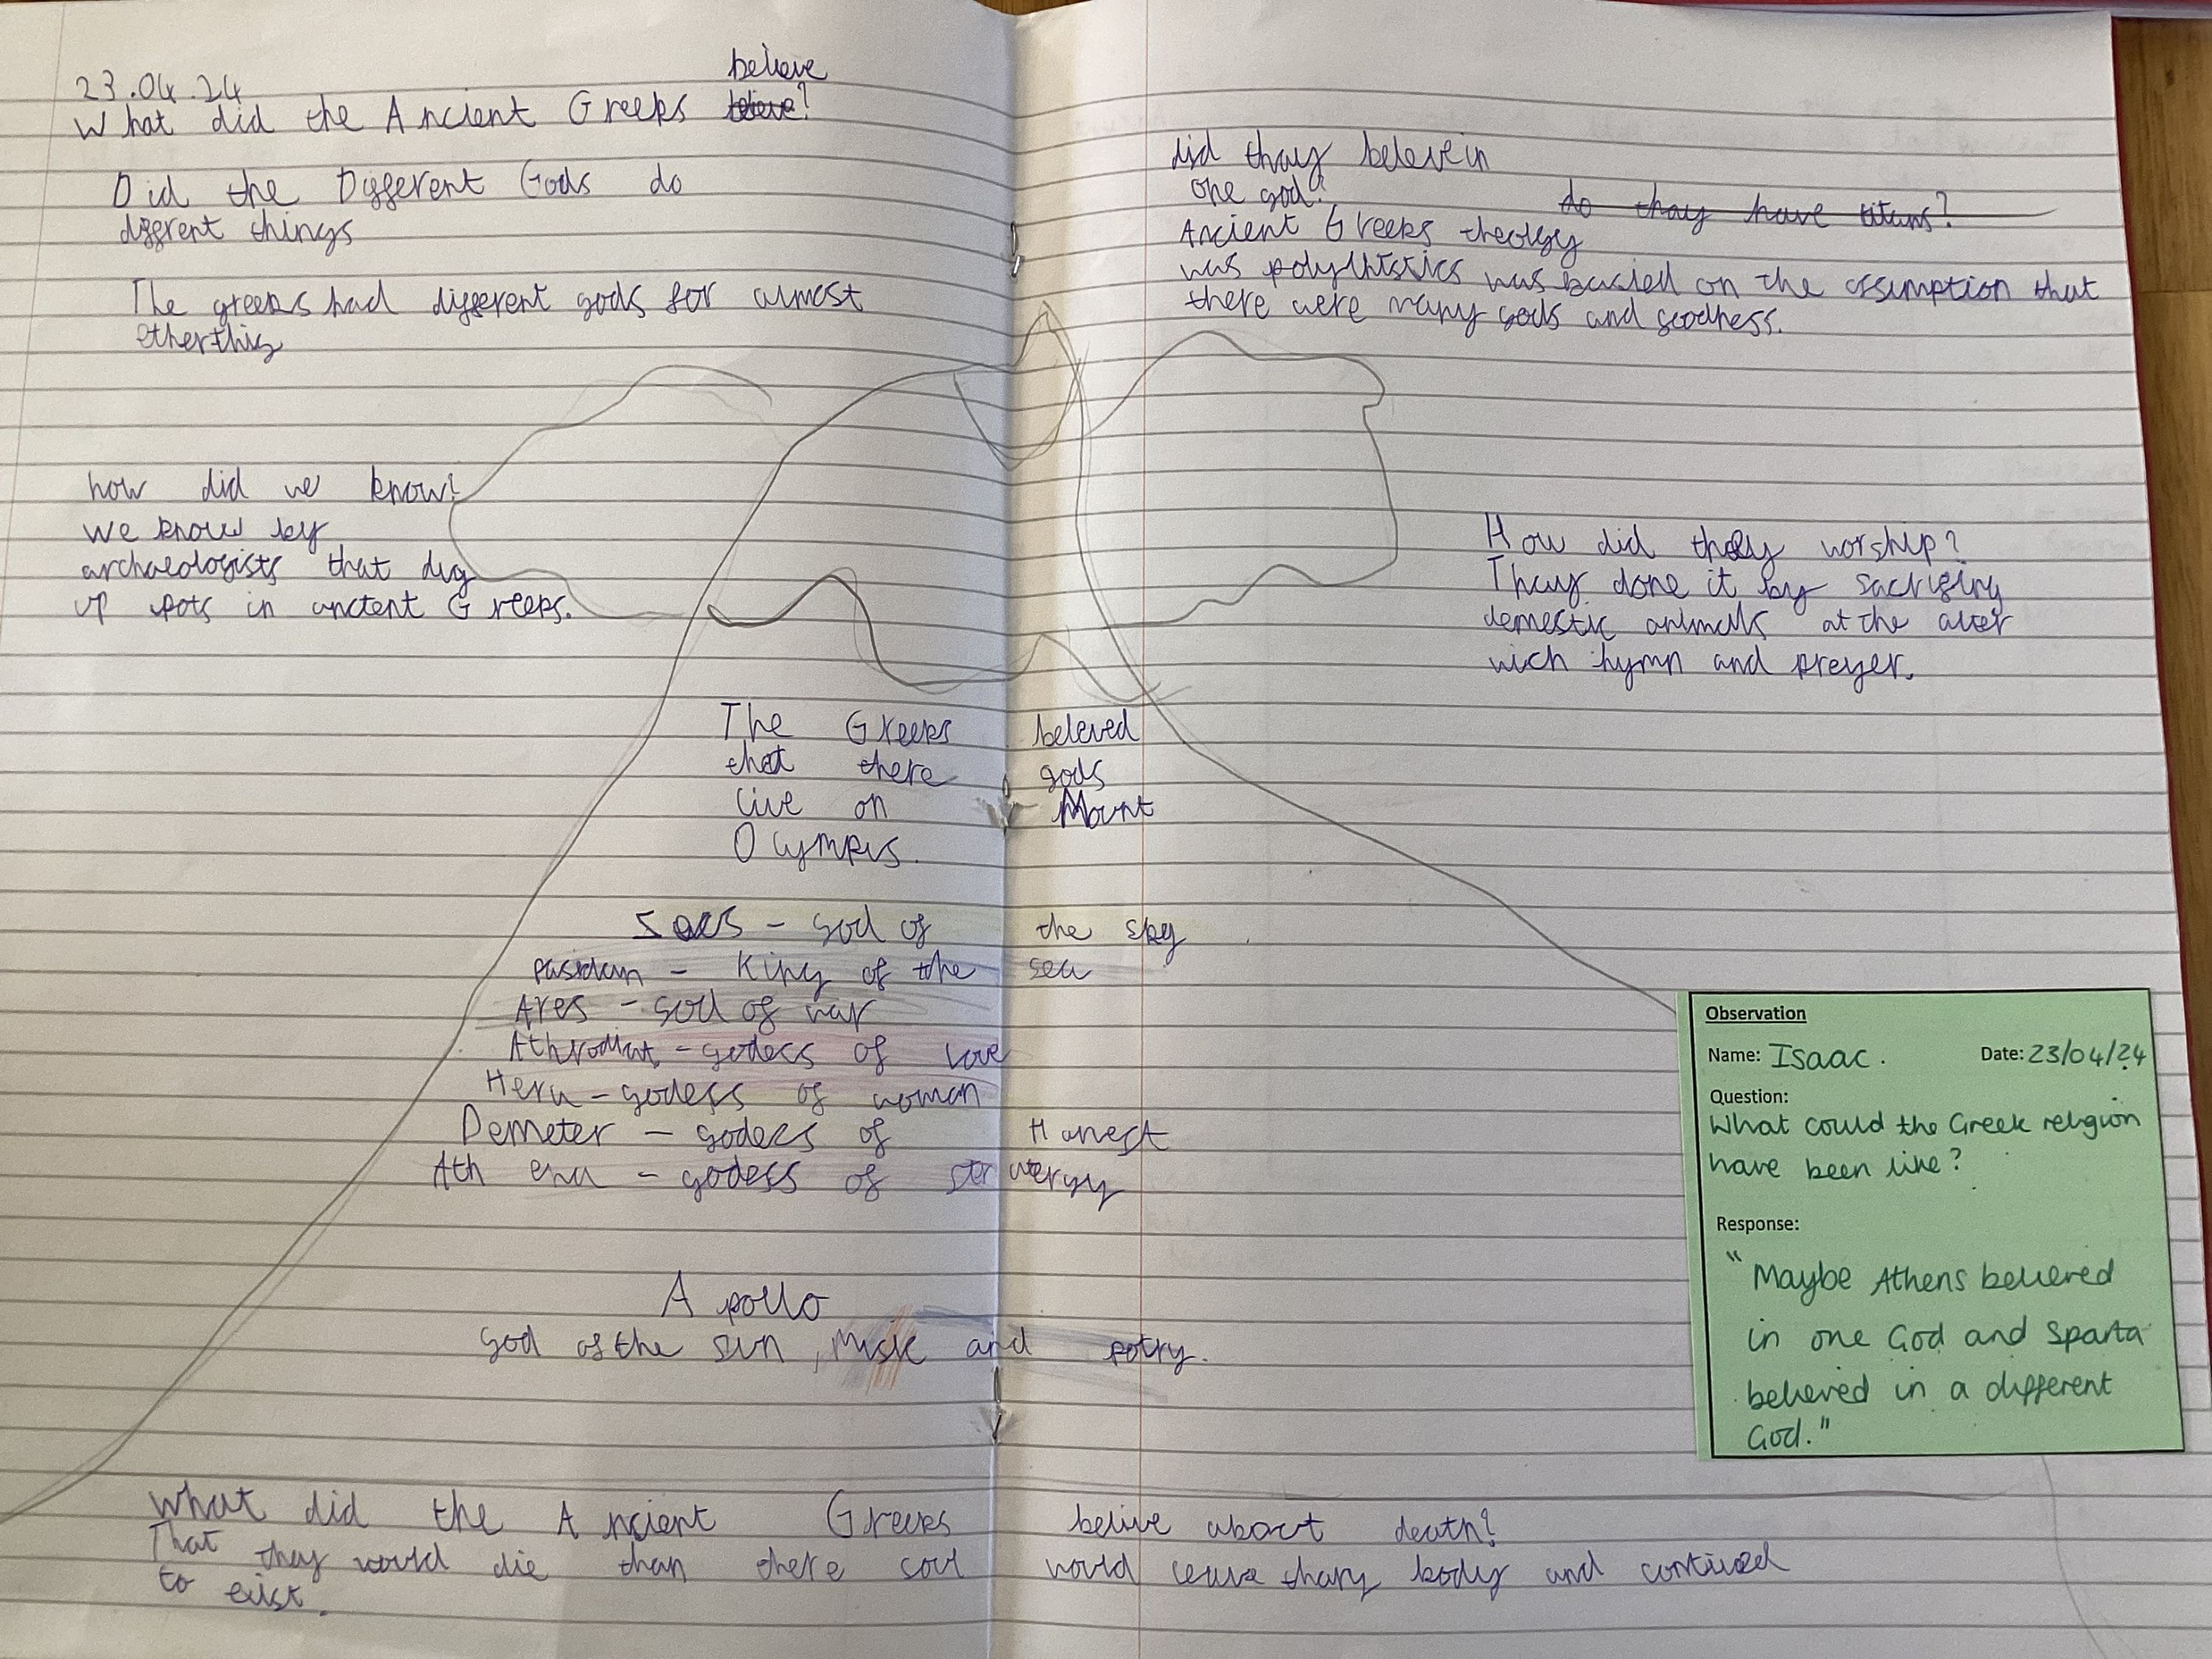 23.04.24
believe
What did the Ancient Greeks believe?
Did the Different Gods do
diffrent things
The greeks had different gods for almost
etherthig
how did we know?
we know by
archaeologists that dig
up pots in anctent Greeks.
did thay beleve in
one god?
do thay have titans?
Ancient Greeks theolgy
was polythistics was basied on the assumption that
there were many gods and goodness.
How did they worship?
Thay done it by sacrifising
demestic animals at the alter
wich hymn and preyer.
The Greeks beleved
that there gods
live on Mount
Olympus.
god of the sky
pasidan - King of the sea
Ares - god of war
Athrodiat - godess of love
Hera - godess of woman
Demeter - godess of Harvest
Athena - godess of
Apollo
god of the sun, Music and potry.
What did the Ancient Greeks belive about death?
That thay would die than there soul would leave thary body and contiued
to exist.
Observation
Name: Isaac. Date: 23/04/24
Question:
What could the Greek religion
have been like?
Response:
"Maybe Athens believed
in one God and Sparta
believed in a different
God."